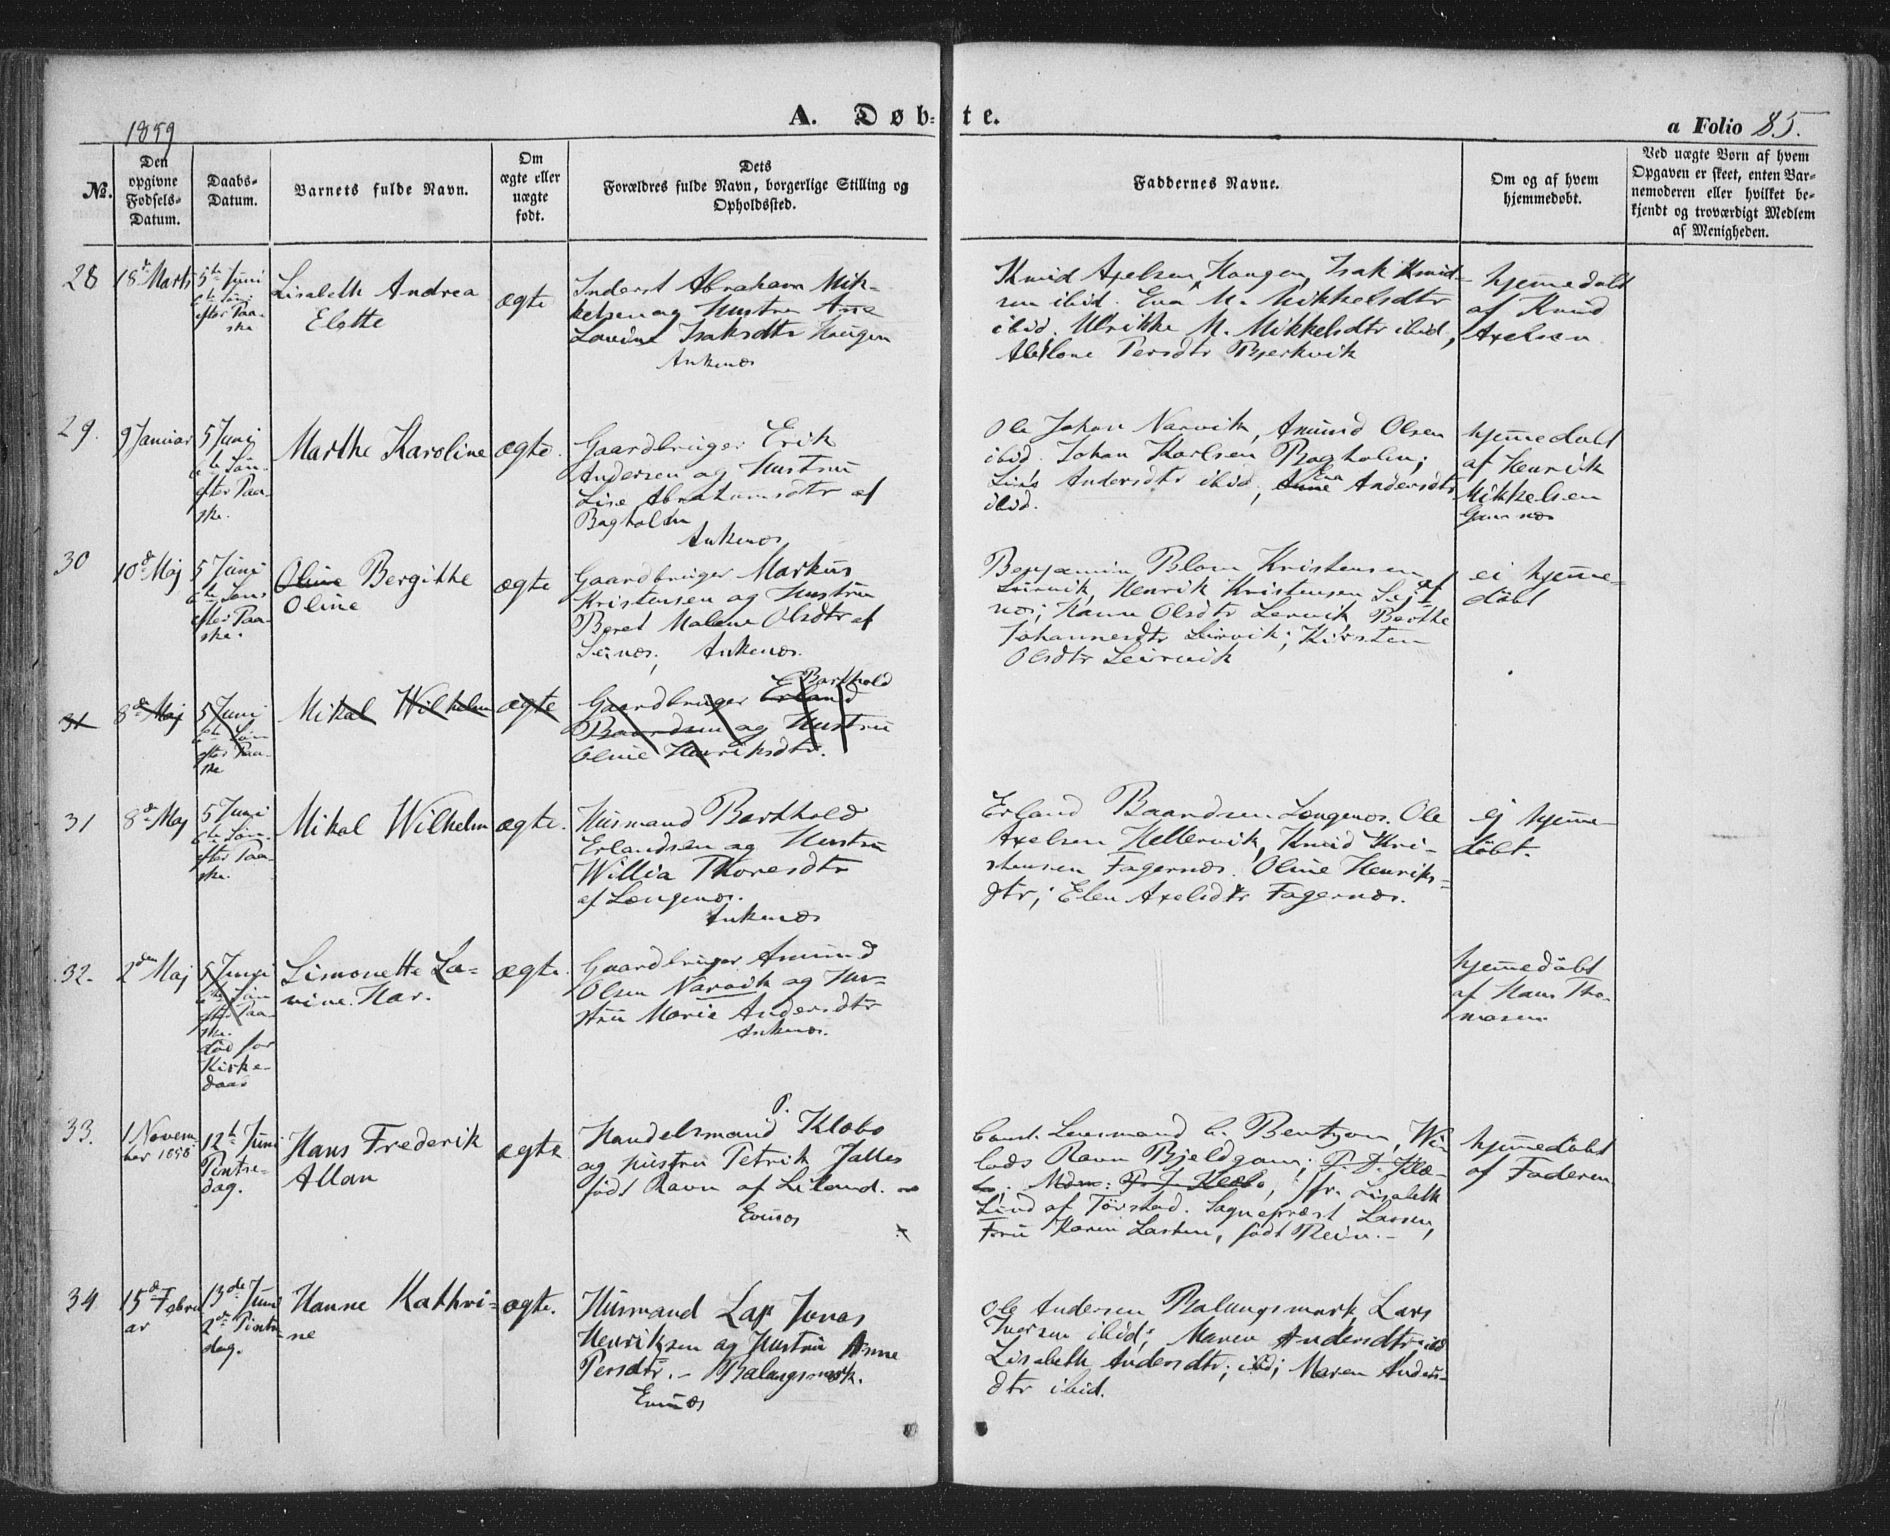 1859
A. Døb-te.
a Folio 85.
No.
Den opgivne Fødsels-Datum.
Daabs-Datum.
Barnets fulde Navn.
Om ægte eller uægte født.
Dets Forældres fulde Navn, borgerlige Stilling og Opholdssted.
Faddernes Navne.
Om og af hvem hjemmedøbt.
Ved uægte Børn af hvem Opgaven er skeet, enten Barnemoderen eller hvilket bekjendt og troværdigt Medlem af Menigheden.
28
18de Marts
5te Juni
6te Søn
efter Paa-
ske
Lisabeth Andrea
Elotte
ægte
Inderst Abraham Mik-
kelsen og Hustru Ane
Lovine Isaksdtr Haugen
Ankenæs
Knud Axelsen Haugen, Isak Knud-
sen ibid. Eva M. Mikkelsdtr
ibid. Ulrikke M. Mikkelsdtr ibid,
Persdtr Bjerkvik
hjemmedøbt
af Knud
Axelsen
29.
9 Januar
5 Juni
6te Søn-
efter Paa-
ske.
Marthe Karoline
ægte.
Gaardbruger Erik
Andersen og Hustru
Lise Abrahamsdtr af
Bagholm
Ankenæs
Ole Johan Narvik, Amund Olsen
ibid. Johan Karlsen Bagholm;
Andersdtr ibid, Anne Andersdtr
ibid.
hjemmedøbt
af Henrik
Mikkelsen
30
10de Maj
5 Juni
6te Søn
efter Paa-
ske.
Oline Bergitte
Oline
ægte
Gaardbruger Markus
Kristensen og Hustru
Beret Malene Olsdtr af
Seinæs, Ankenæs.
Benjamin Blom Kristensen
Leirvik, Henrik Kristensen Sei-
næs; Hanne Olsdtr Lervik Berthe
Johannesdtr Leirvik; Kirsten
Olsdtr Leirvik
ei hjemme-
døbt
31
8de Maj
5 Juni
6te Søn
efter Paa-
ske
Mikal Wilhelm
ægte
Barthold
Gaardbruger Erland
Baardsen og Hustru
Oline Henriksdtr.
31
8de Maj
5 Juni
6te Søn-
efter Paa-
ske.
Mikal Wilhelm
ægte.
Husmand Barthold
Erlandsen og Hustru
Willia Thoresdtr
af Længenæs.
Ankenæs
Erland Baardsen Længenæs. Ole
Axelsen Hellervik, Knud Kri-
stensen Fagernæs. Oline Henriks-
dtr; Elen Axelsdtr Fagernæs.
ej hjemme-
døbt.
32.
2den Maj
5 Juni
6te Søn
efter Paa-
ske.
død før
Kirke-
daab
Simonette La-
vine. Har.
ægte.
Gaardbruger Amund
Olsen Narvik og Hu-
stru Marie Andersdtr
Ankenæs.
hjemmedøbt
af Hans Tho-
masen
33.
1 Novem-
ber 1858
12te Juni
Pintse-
dag.
Hans Frederik
Allan
ægte
P.
Handelsmand Klæbo
og Hustru Petrik Jalles
født Ravn af Liland.
Evenæs
Const. Lensmand Bentzon, Wi-
lads Ravn Bjeldgam; P. D. Klæ-
bo; Mdm: P. J. Klæbo, jfr. Lisabeth
Lind af Tørstad. Sognepræst Lassen,
Fru Karen Lassen, født Rein.-
hjemmedøbt
af Faderen
34
15de Febru
ar
13de Juni
2den Pintse-
dag.
Hanne Kathri-
ne
ægte.
Husmand Lap Jonas
Henriksen og Hustru Anne
Persdtr.- Balangsmark.
Evenæs
Ole Andersen Balangsmark, Lars
Iversen ibid; Maren Andersdtr ibid
Lisabeth Andersdtr; ibid; Maren Anders-
dtr ibid.